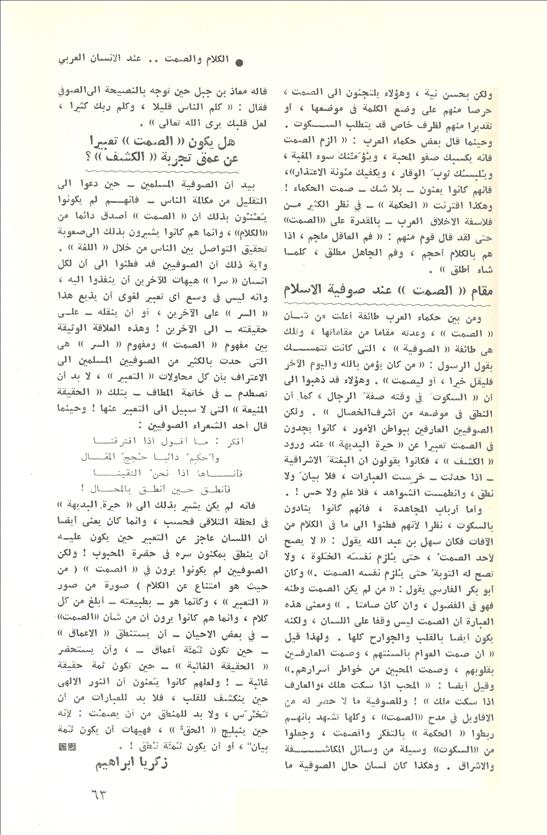 ● الكلام والصمت .. عند الانسان العربي
ولكن بحسن نية ، وهؤلاء يلتجئون الى الصمت ،
حرصا منهم على وضع الكلمة في موضعها ، أو
تقديرا منهم لظرف خاص قد يتطلب السـكوت .
وحينما قال بعض حكماء العرب : (( الزم الصمت
فانه يكسبك صفو المحبة ، ويُؤَمِّنك سوء المغبة ،
ويُلبسك ثوب الوقار ، ويكفيك مئونة الاعتذار))،
فانهم كانوا يعنون ــ بلا شك ــ صمت الحكماء !
وهكذا اقترنت (( الحكمة )) ــ في نظر الكثير مـن
فلاسفة الاخلاق العرب ــ بالمقدرة على ((الصمت))
حتى لقد قال قوم منهم : (( فم العاقل ملجم ، اذا
هم بالكلام أحجم ، وفم الجاهل مطلق ، كلمـا
شاء أطلق )) .
مقام (( الصمت )) عند صوفية الاسلام
ومن بين حكماء العرب طائفة أعلت من شـأن
(( الصمت )) ، وعدته مقاما من مقاماتها ، وتلك
هى طائفة (( الصوفية )) ، التى كانت تتمسـك
بقول الرسول : (( من كان يؤمن بالله واليوم الآخر
فليقل خيرا ، أو ليصمت )) . وهؤلاء قد ذهبوا الى
أن (( السكوت في وقته صفة الرجال ، كما أن
النطق في موضعه من أشرف الخصال )) . ولكن
الصوفيين العارفين ببواطن الأمور ، كانوا يجدون
في الصمت تعبيرا عن (( حيرة البديهة )) عند ورود
(( الكشف )) ، فكانوا يقولون ان البغتة الاشراقية
ــ اذا حدثت ــ خرست العبارات ، فلا بيان ولا
نطق ، وانطمست الشواهد ، فلا علم ولا حس ! .
وأما أرباب المجاهدة ، فانهم كانوا ينادون
بالسكوت ، نظرا لأنهم فطنوا الى ما في الكلام من
الآفات فكان سهل بن عبد الله يقول : (( لا يصح
لأحد الصمت ، حتى يلزم نفسه الخلوة ، ولا
تصح له التوبة حتى يلزم نفسه الصمت .)) وكان
أبو بكر الفارسي يقول : (( من لم يكن الصمت وطنه
فهو في الفضول ، وان كان صامتا . )) ومعنى هذه
العبارة أن الصمت ليس وقفا على اللسان ، ولكنه
يكون أيضا بالقلب والجوارح كلها . ولهذا قيل
(( ان صمت العوام بألسنتهم ، وصمت العارفـين
بقلوبهم ، وصمت المحبين من خواطر أسرارهم.))
وقيل أيضا : (( المحب اذا سكت هلك ،والعارف
اذا سكت ملك )) ! وللصوفية ما لا حصر له من
الاقاويل في مدح ((الصمت)) ، وكلها تشهد بأنهـم
ربطوا (( الحكمة )) بالتفكر والصمت ، وجعلوا
من ((السكوت)) وسيلة من وسائل المكاشـفة
والاشراق . وهكذا كان لسان حال الصوفية ما
قاله معاذ بن جبل حين توجه بالنصيحة الى الصوفي
فقال : (( كلم الناس قليلا ، وكلم ربك كثيرا ،
لعل قلبك يرى الله تعالى )) .
هل يكون (( الصمت )) تعبيرا
عن عمق تجربة (( الكشف )) ؟
بيد أن الصوفية المسلمين ــ حين دعوا الى
التقليل من مكالمة الناس ــ فانهـم لم يكونوا
يَعْنُون بذلك أن (( الصمت )) أصدق دائما من
((الكلام)) ، وانما هم كانوا يشيرون بذلك الى صعوبة
تحقيق التواصل بين الناس من خلال (( اللغة )) .
وآية ذلك أن الصوفيين قد فطنوا الى أن لكل
انسان (( سرا )) هيهات للآخرين أن ينفذوا اليه ،
وانه ليس في وسع أى تعبير لغوى أن يذيع هذا
(( السر )) على الآخرين ، أو أن ينقله ــ علـى
حقيقته ــ الى الآخرين ! وهذه العلاقة الوثيقة
بين مفهوم (( الصمت )) ومفهوم (( السر )) هى
التى حدت بالكثير من الصوفيين المسلمين الى
الاعتراف بأن كل محاولات (( التعبير )) ، لا بد أن
تصطدم ــ في خاتمة المطاف ــ بتلك (( الحقيقة
المنيعة )) التى لا سبيل الى التعبير عنها ! وحينما
قال أحد الشعراء الصوفيين :
أفكر : مـا أقول اذا افترقنـا
وأحكم دائبا حُججَ المقـال
فأنسـاها اذا نحن التقينـا
فأنطق حـين أنطـق بالمحـال !
فانه لم يكن يشير بذلك الى (( حيرة البديهة ))
في لحظة التلاقي فحسب ، وانما كان يعنى أيضا
أن اللسان عاجز عن التعبير حين يكون عليـه
أن ينطق بمكنون سره في حضرة المحبوب ! ولكن
الصوفيين لم يكونوا يرون في (( الصمت )) ( من
حيث هو امتناع عن الكلام ) صورة من صور
(( التعبير )) ، وكأنما هو ــ بطبيعته ــ أبلغ من كل
كلام ، وانما هم كانوا يرون أن من شأن ((الصمت))
ــ في بعض الاحيان ــ أن يستنطق (( الاعماق ))
ــ حين تكون ثمة أعماق ــ ، وأن يستحضر
(( الحقيقة الغائبة )) ــ حين تكون ثمة حقيقة
غائبة ــ ! ولعلهم كانوا يَعنون أن النور الالهى
حين ينكشف للقلب ، فلا بد للعبارات من أن
تخرس ، ولا بد للمنطق من أن يصمت : لأنه
حين ينبلج (( الحق )) ، فهيهات أن يكون ثمة
بيان ، أو أن يكون ثمة نطق ! .
زكريا ابراهيم
٦٣